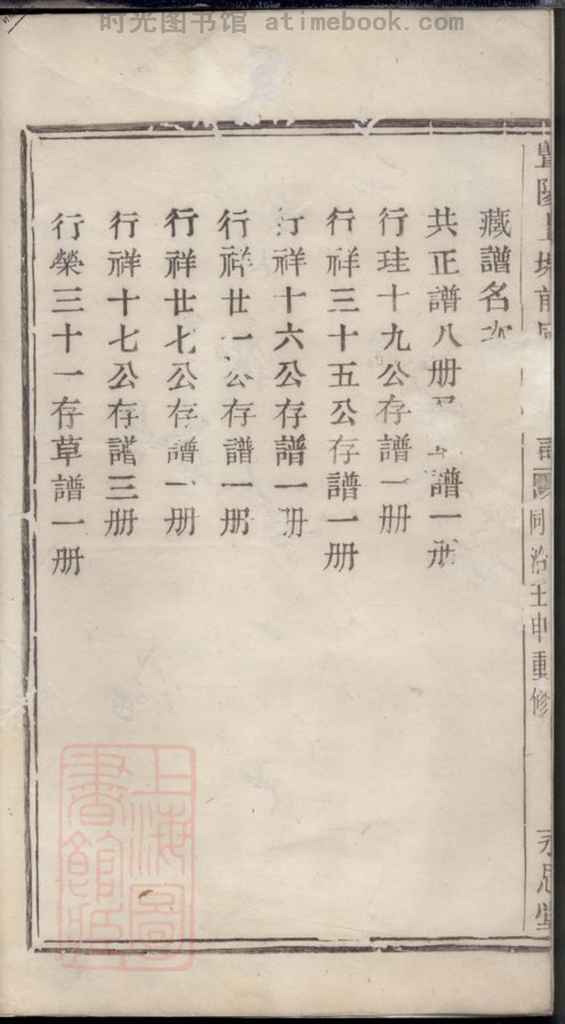 时光图书馆 atimebook.com
同治壬申重修
藏譜名
共正譜八册 譜一册
行珪十九公存譜一册
行祥三十五公存譜一册
行祥十六公存譜一册
行祥廿一公存譜一册
行祥廿七公存譜一册
行祥十七公存譜三册
行榮三十一存草譜一册
上海圖
書館藏